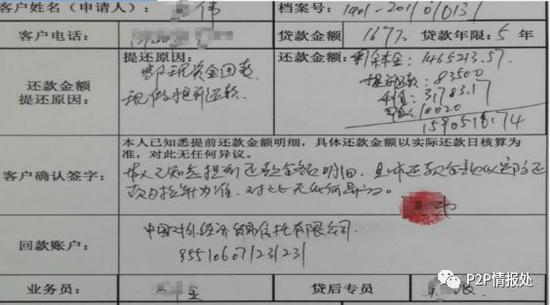 客户姓名(申请人) 伟 档案号: 1401-2017010131
客户电话: 贷款金额 167万 贷款年限: 5 年
还款金额
提还原因:
提还原因:
客户现资金回款
现做提前还款
还款金额: 剩余本金: 1465213.57
提前还款: 83500
利息: 31783.17
10020
1590518.74
客户确认签字:
本人已知悉提前还款金额明细,具体还款金额以实际还款日核算为
准,对此无任何异议。
本人已知悉提前还款金额明细,具体还款金额以实际还
款日核算为准,对此无任何异议。
回款账户:
中国对外经济贸易信托有限公司
955106071231231
业务员: 贷后专员
P2P情报处